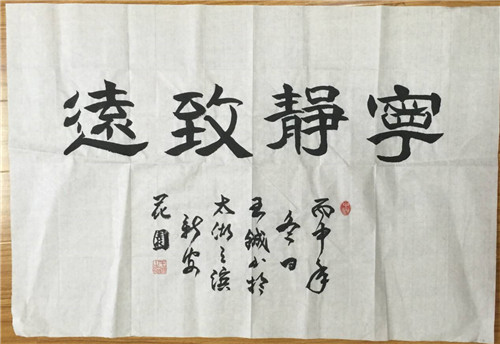 寧靜致遠
丙申年
冬日
王鋮書於
太湖之濱
新安
花園